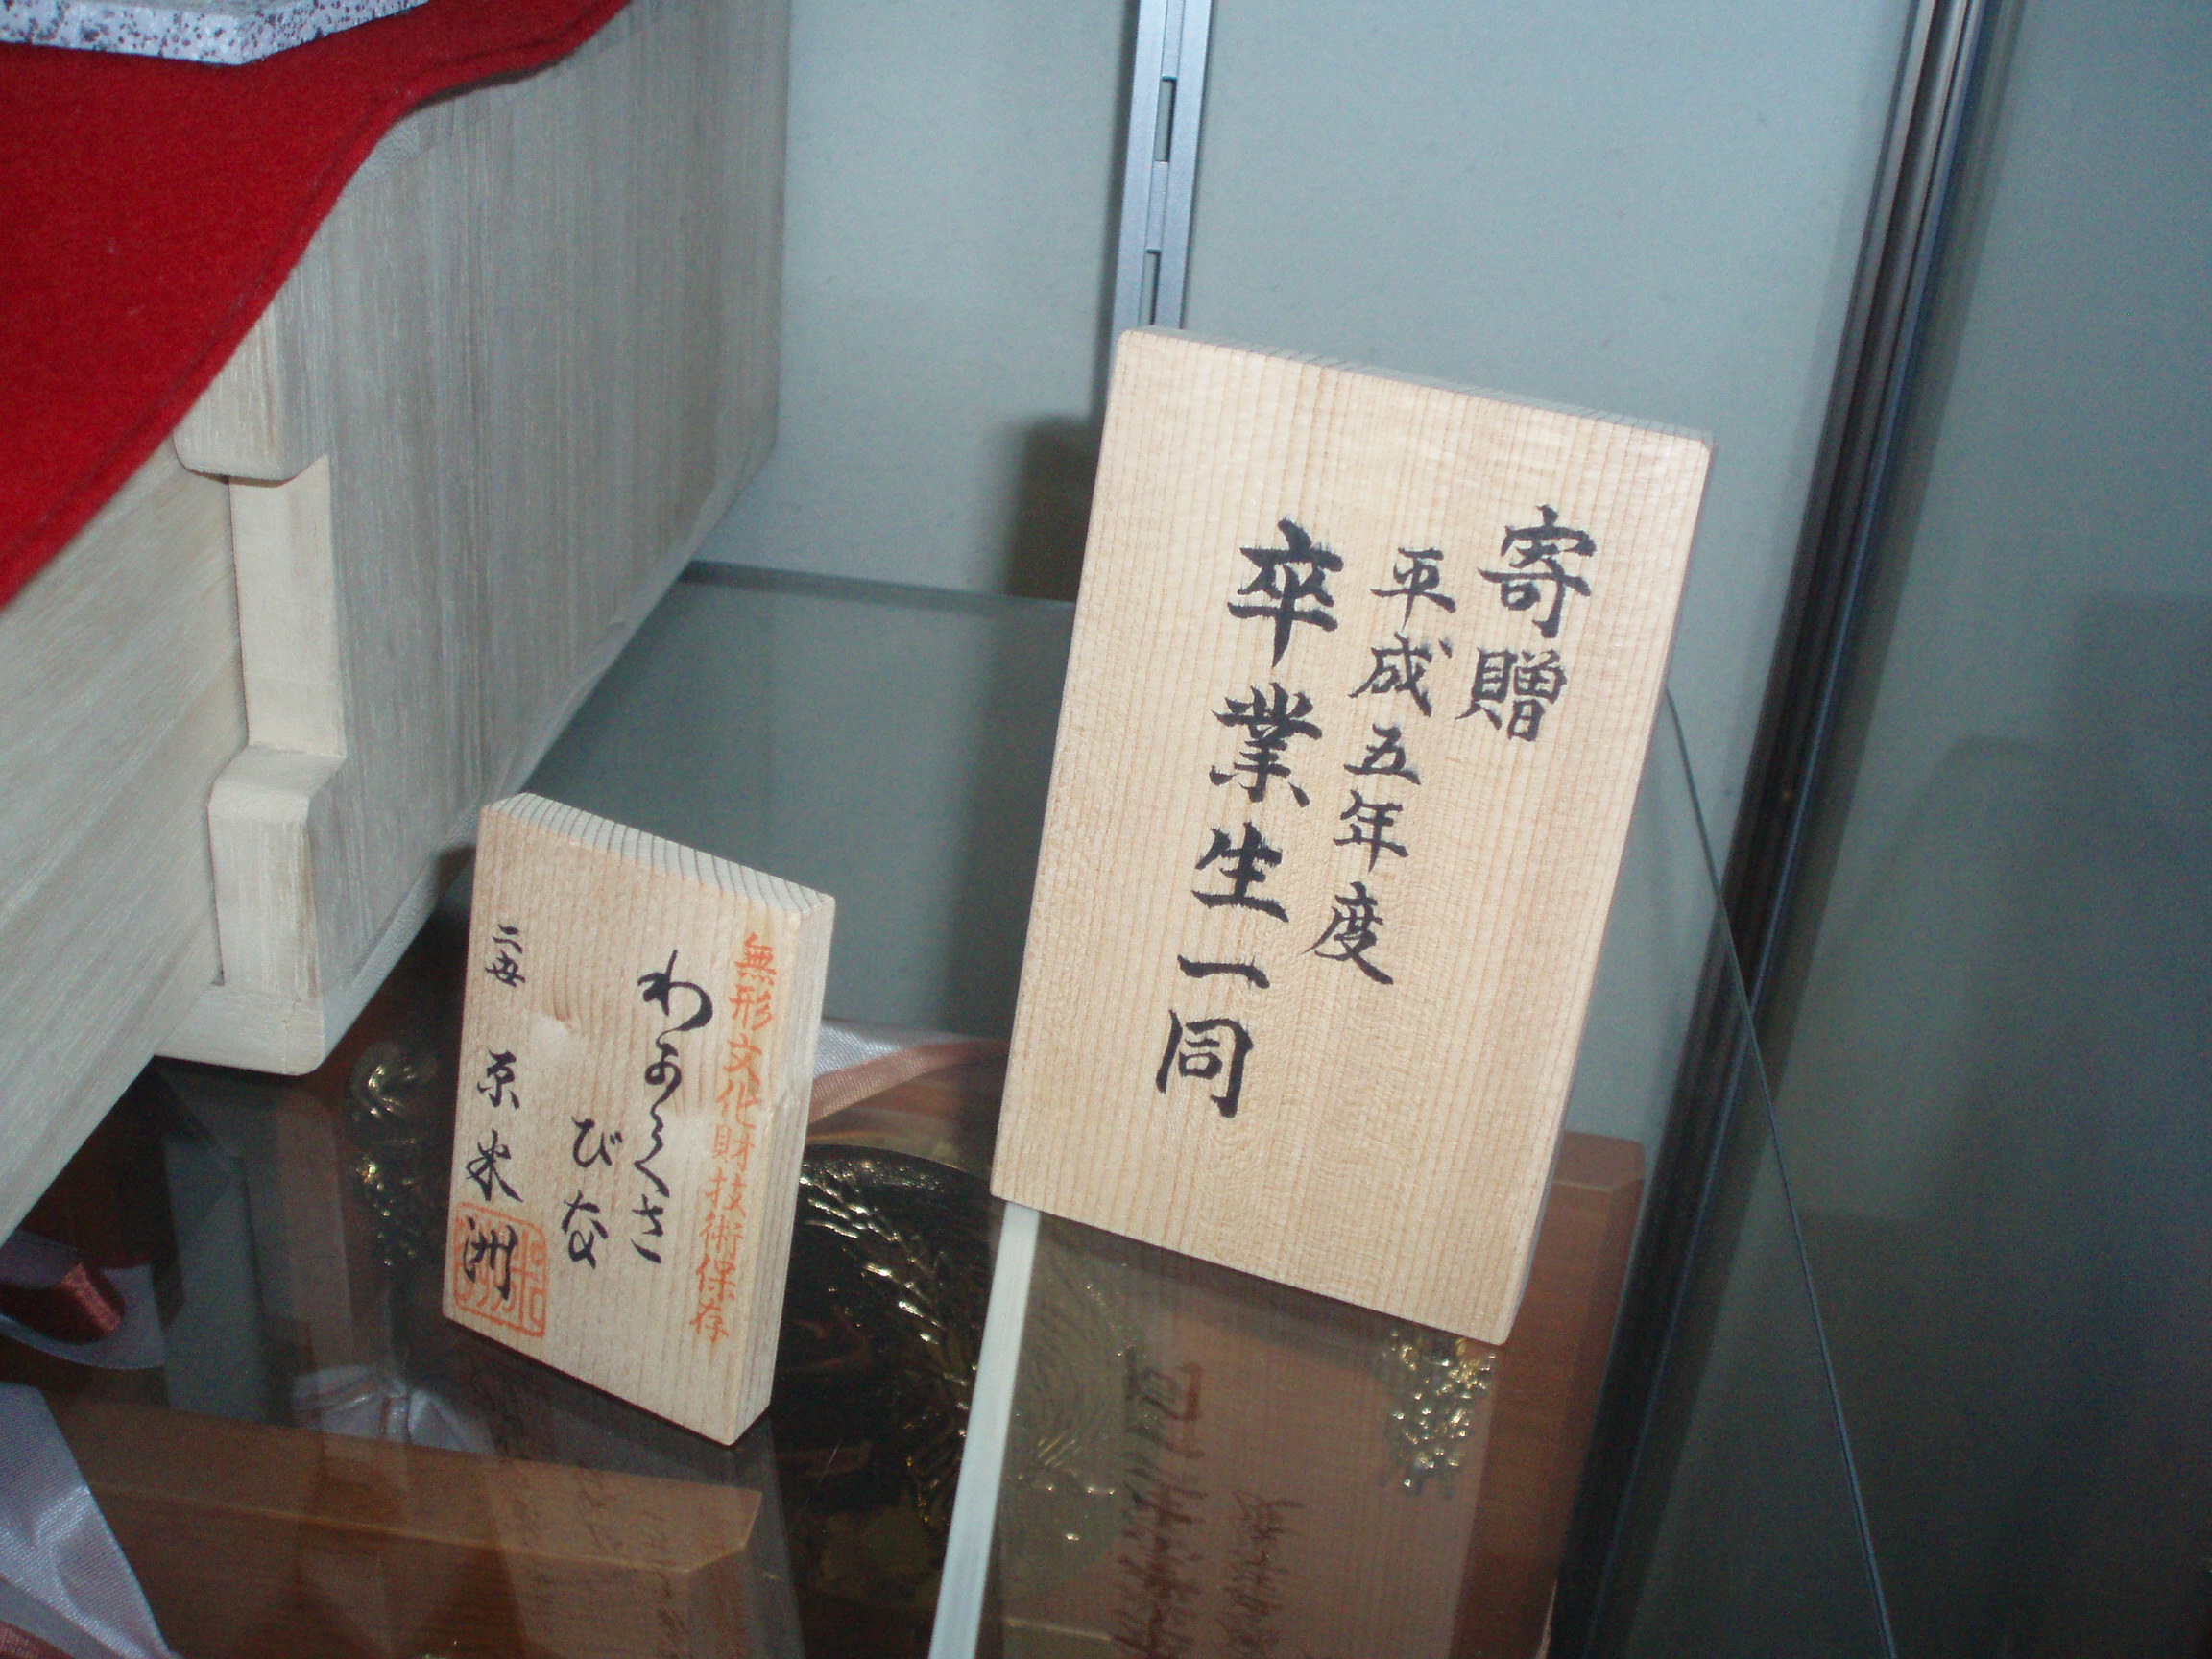 寄贈
平成五年度
卒業生一同
無形文化財技術保存
わかくさ
びな
二世 原米洲